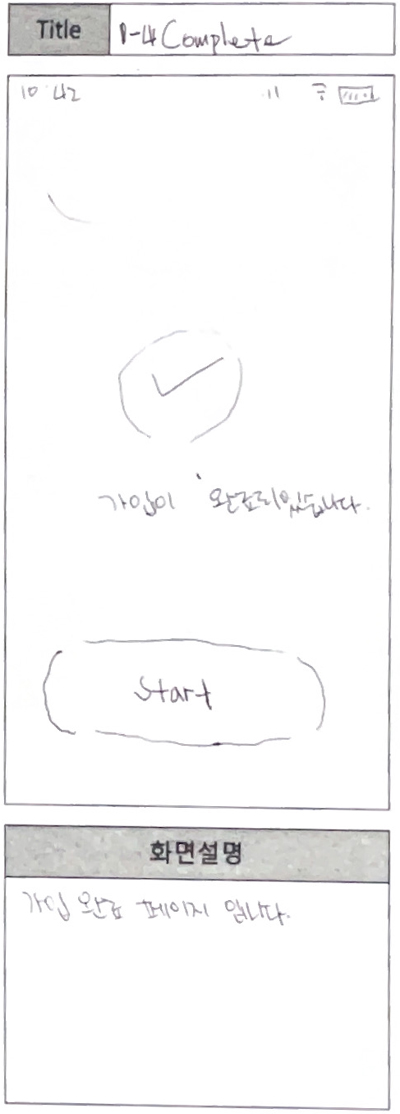 Title 1-4 Complete
10:42
가입이 완료되었습니다.
Start
화면설명
가입 완료 페이지 입니다.